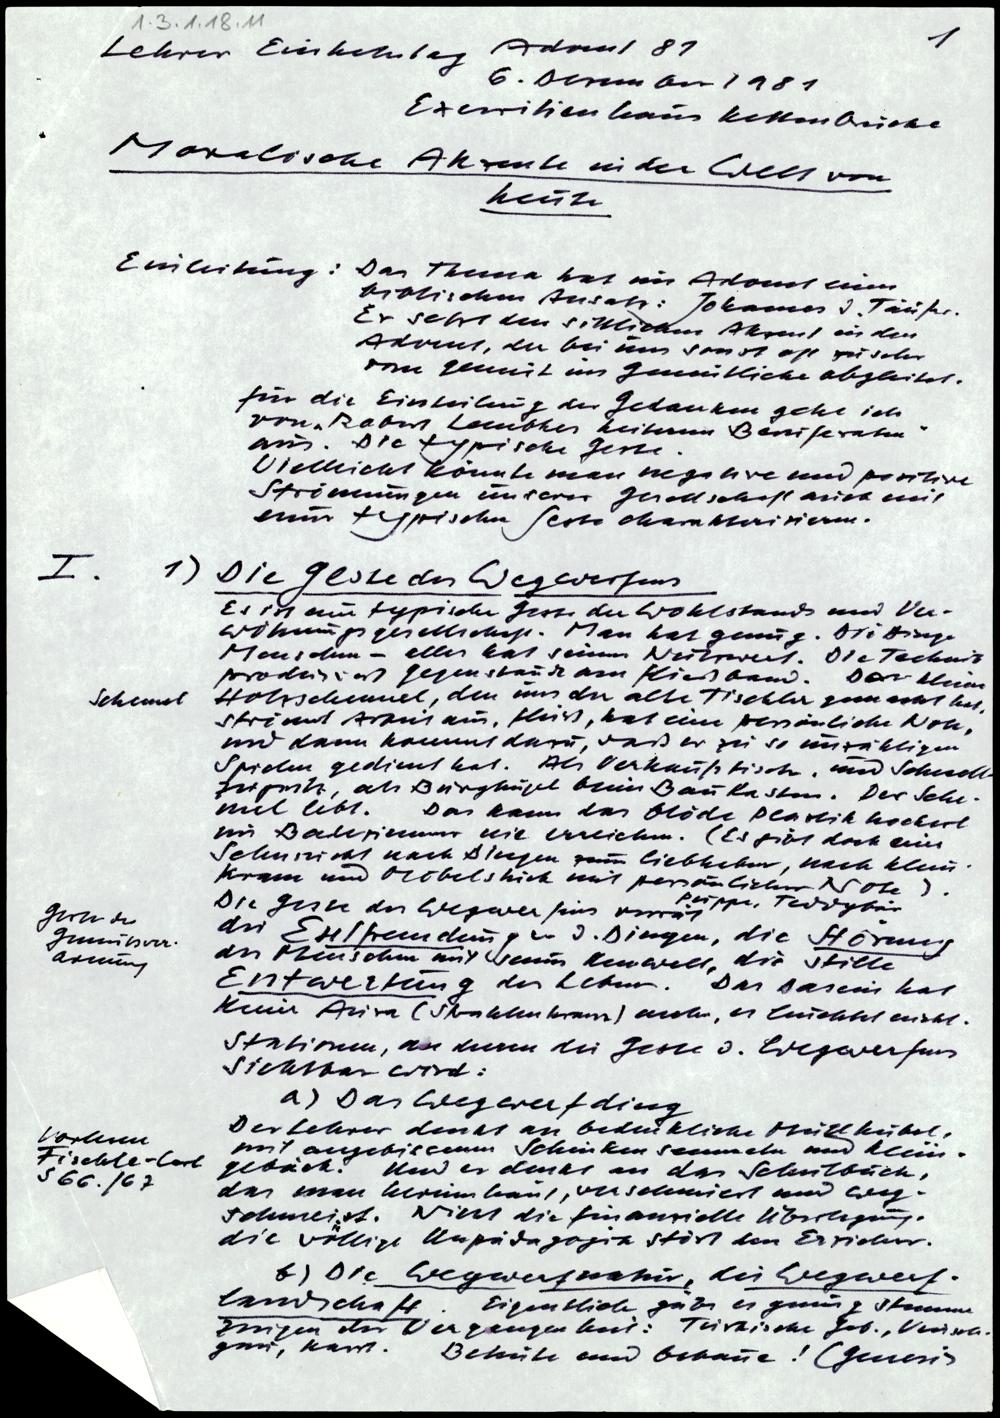 1.3.1.18.11
1
Lehrer Einkehrtag Advent 81
6. Dezember 1981
Exerzitienhaus Kettenbrücke
Moralische Akzente in der Welt von
heute
Einleitung: Das Thema hat im Advent einen
biblischen Ansatz: Johannes d. Täufer.
Er setzt den sittlichen Akzent in den
Advent, der bei uns sonst oft zu sehr
vom Gemüt ins Gemütliche abgleitet.
Für die Einteilung der Gedanken gehe ich
von „Robert Lembkes heiterem Beruferaten"
aus. Die typische Geste.
Vielleicht könnte man negative und positive
Strömungen unserer Gesellschaft auch mit
einer typischen Geste charakterisieren.
I. 1) Die Geste des Wegwerfens
Es ist eine typische Geste der Wohlstands und Ver-
wöhnungsgesellschaft. Man hat genug. Die Dinge
Menschen – alles hat seinen Nutzwert. Die Technik
produziert Gegenstände am Fließband. Der kleine
Schemel
Holzschemel, den uns der alte Tischler gemacht hat,
strömt Arbeit aus, Fleiß, hat eine persönliche Note,
und dann kommt dazu, daß er zu so unzähligen
Spielen gedient hat. Als Verkaufstisch, und
als Burghügel beim Baukasten. Der Sche-
mel lebt. Das kann das blöde Plastik hockerl
im Badezimmer nie erreichen. (Es gibt doch eine
Sehnsucht nach Dingen zum Liebhaben, nach Klein-
kram und Möbelstück mit persönlicher Note).
Puppe, Teddybär
Die Geste des Wegwerfens verrät
Geste der
Gemütsver-
armung
die Entfremdung v. d. Dingen, die Störung
des Menschen mit seiner Umwelt, die stille
Entwertung des Lebens. Das Dasein hat
keine Aura (Strahlenkranz) mehr, es leuchtet nicht.
Stationen, an denen die Geste d. Wegwerfens
sichtbar wird:
a) Das Wegwerfding
Der Lehrer denkt an bedenkliche Müllkübel,
mit angebissenen Schinkensemmeln und Klein-
Vorlesen
Fischle-Carl
S 66./67
gebäck. Und er denkt an das Schulbuch,
das man herumhaut, verschmiert und weg-
schmeißt. Nicht die finanzielle Überlegung,
die völlige Unpädagogik stört den Erzieher.
b) Die Wegwerfnatur, die Wegwerf-
landschaft. Eigentlich gäbe es genug stumme
Zeugen der Vergangenheit: Türkische Geb.,
Karst. Behüte und bebaue! (Genesis